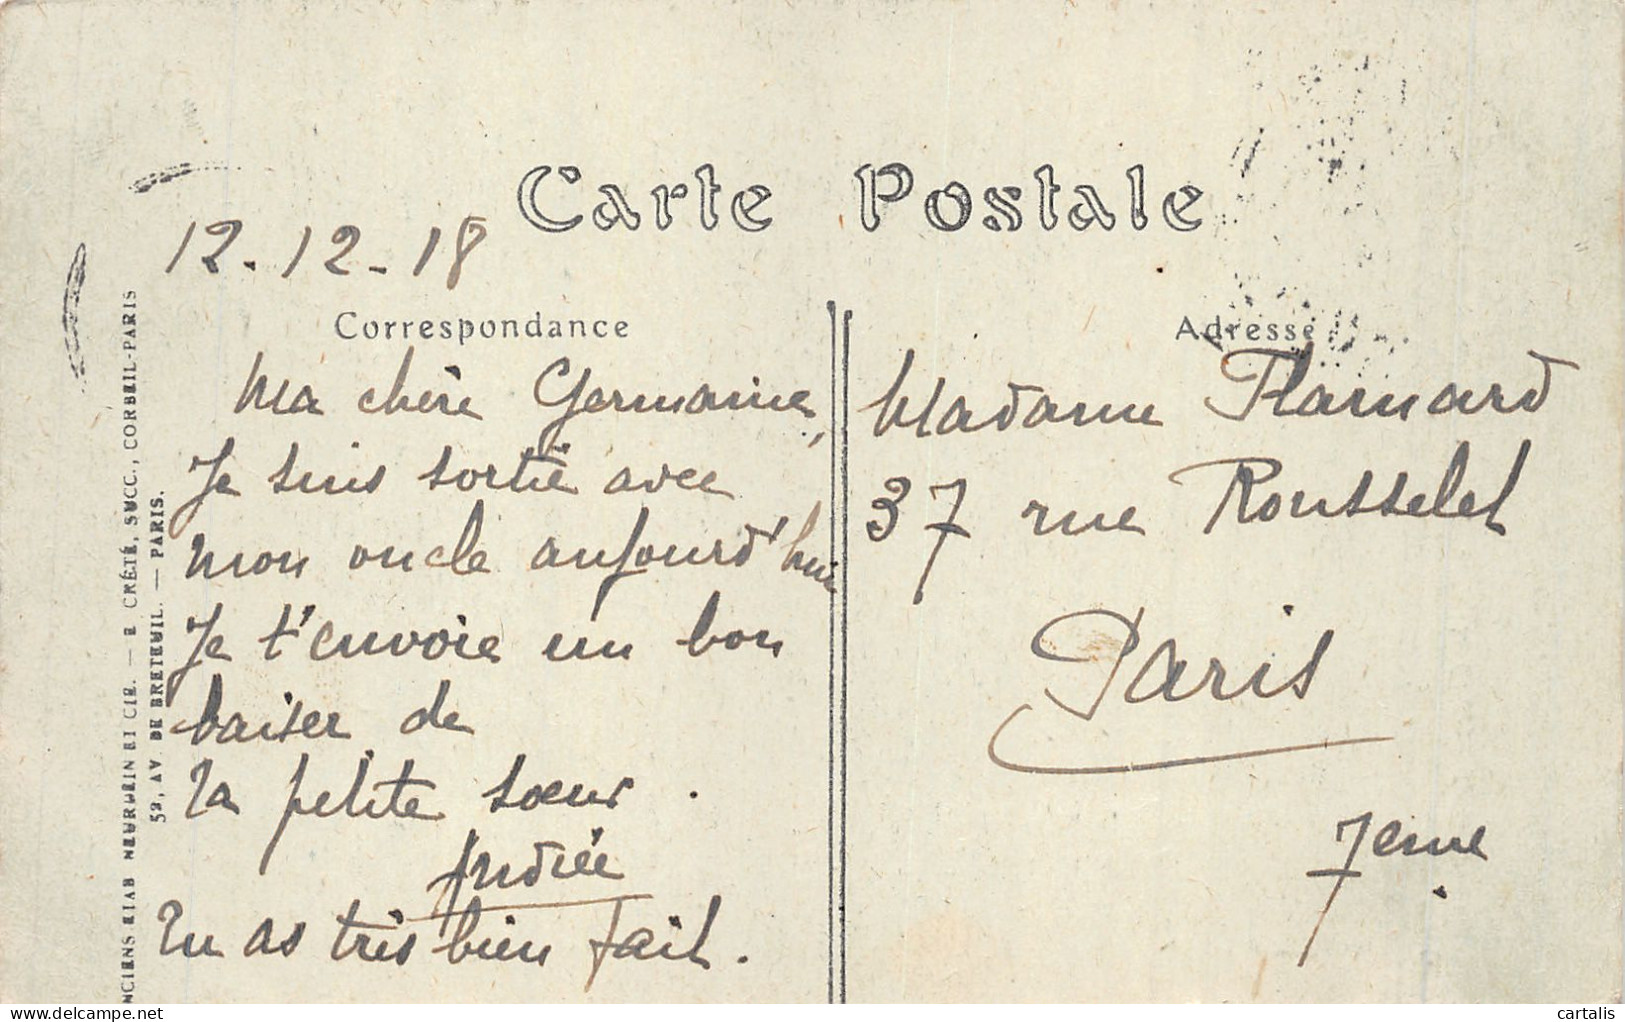 Carte Postale
12.12-18
Correspondance
Ma chère Germaine,
Je suis sortie avec
mon oncle aujourd'hui
Je t'envoie un bon
baiser de
Ta petite sœur.
Andrée
Tu as très bien fait.
Adresse
Madame Flamard
37 rue Rousselet
Paris
7eme
NCIENS ETAB NEURDEIN ET CIE. — E. CRÉTÉ, SUCC., CORBEIL-PARIS
52, AV. DE BRETEUIL. — PARIS.
delcampe.net
cartalis